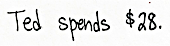 Ted spends $28.